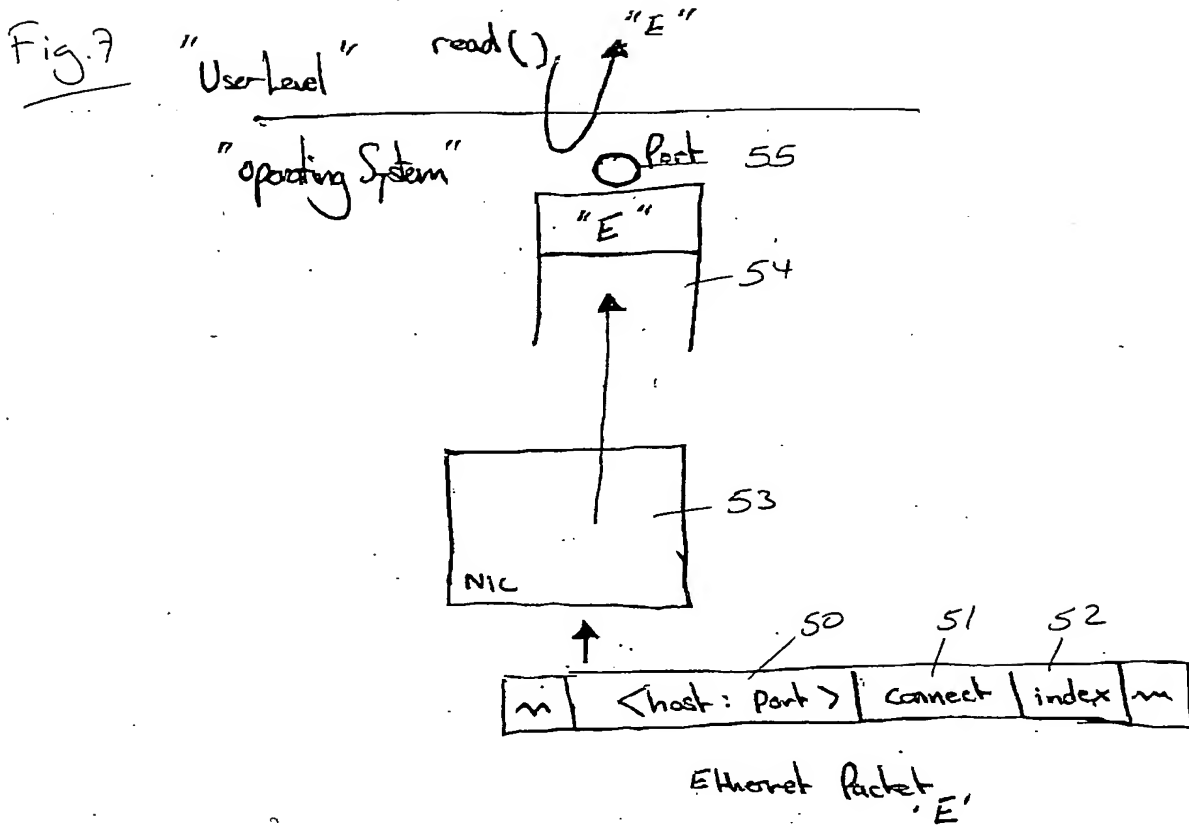 Fig.7
"User-Level"
read()
"E"
"Operating System"
Port 55
"E"
54
53
NIC
50 51 52
<host: Port> connect index
Ethernet Packet 'E'